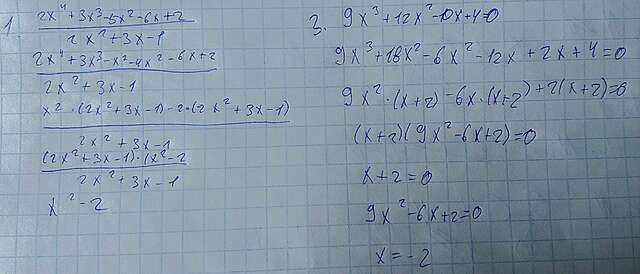 1. (2x⁴+3x³-5x²-6x+2)/(2x²+3x-1)
(2x⁴+3x³-x²-4x²-6x+2)/(2x²+3x-1)
(x²·(2x²+3x-1)-2·(2x²+3x-1))/(2x²+3x-1)
((2x²+3x-1)·(x²-2)/(2x²+3x-1)
x²-2
3. 9x³+12x²-10x+4=0
9x³+18x²-6x²-12x+2x+4=0
9x²·(x+2)-6x·(x+2)+2(x+2)=0
(x+2)(9x²-6x+2)=0
x+2=0
9x²-6x+2=0
x=-2